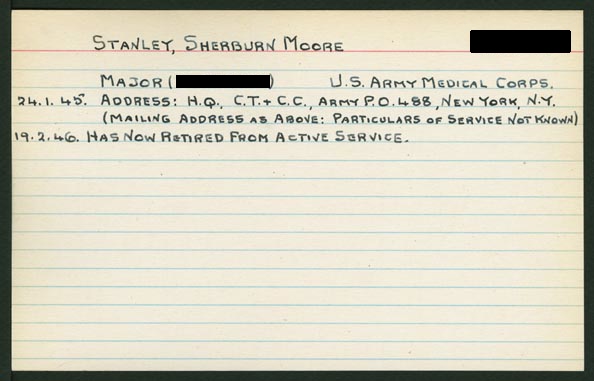 STANLEY, SHERBURN MOORE
MAJOR ( ) U.S. ARMY MEDICAL CORPS.
24.1.45. ADDRESS: H.Q., C.T. + C.C., ARMY P.O. 488, NEW YORK, N.Y.
(MAILING ADDRESS AS ABOVE: PARTICULARS OF SERVICE NOT KNOWN)
19.2.46. HAS NOW RETIRED FROM ACTIVE SERVICE.